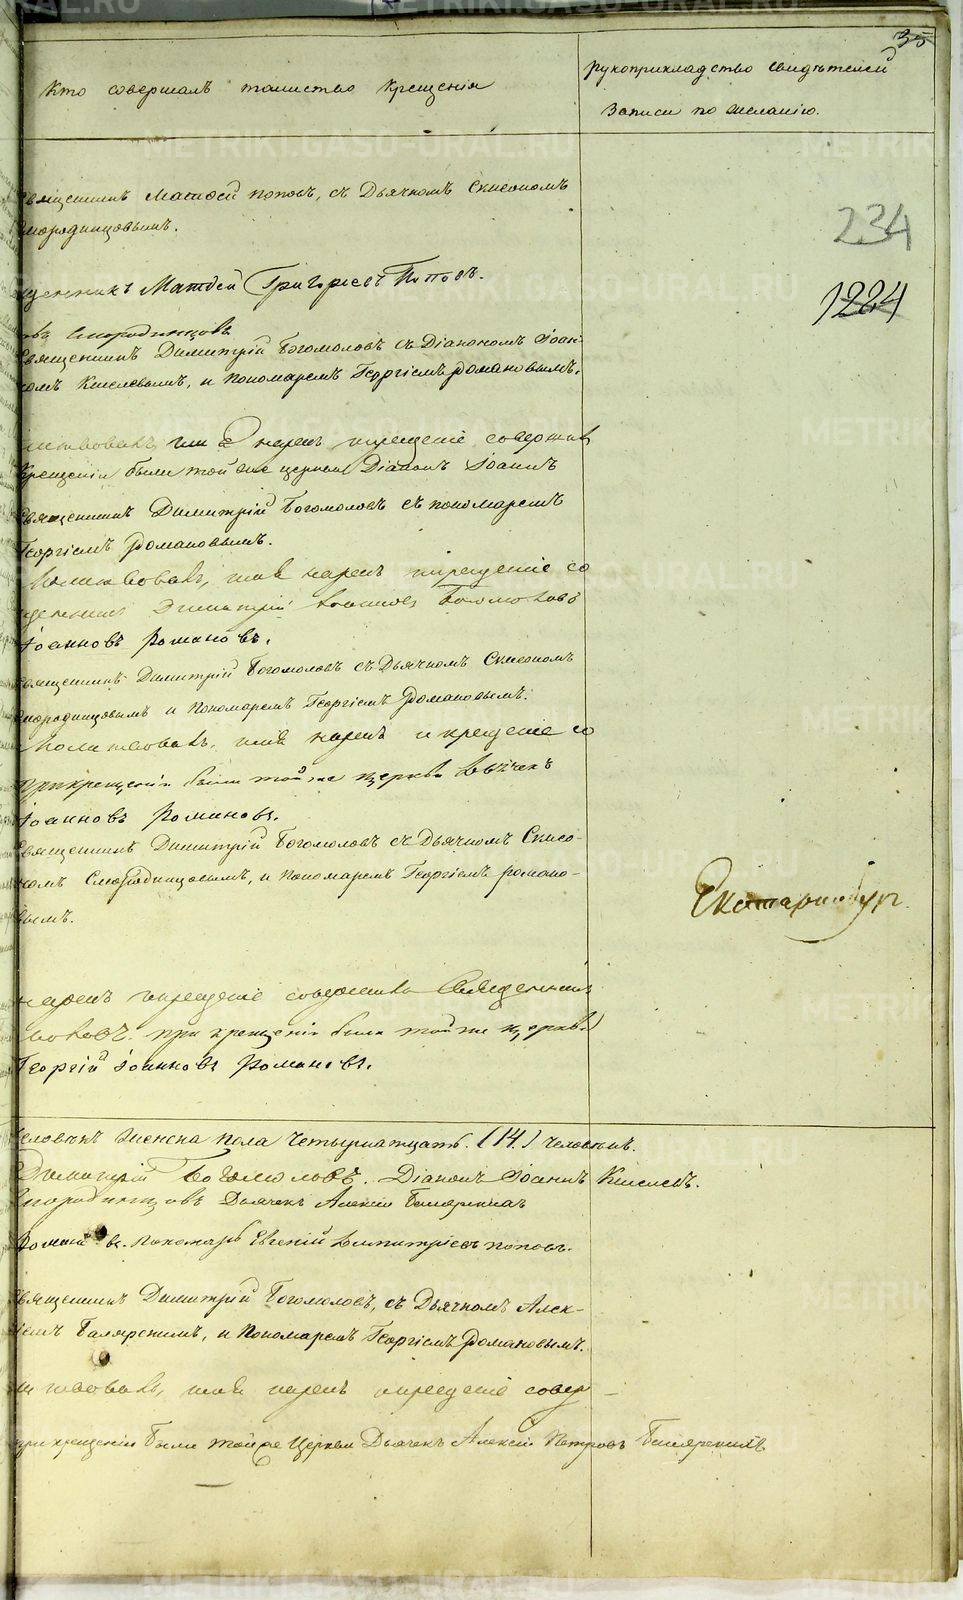 35
Кто совершалъ таинство крещенія
рукоприкладство свидѣтелей
записи по желанію.
Священникъ Матѳей Поповъ, съ Дьячкомъ Симеономъ
Смородинцовымъ.
234
щенникъ Матѳей Григорьевъ Поповъ.
1224
въ Смородинцовъ
Священникъ Димитрій Богомоловъ съ Діакономъ Іоан-
номъ Киселевымъ, и Пономаремъ Георгіемъ Романовымъ.
нарекъ крещеніе соверши
Крещеніи были той же церкви Діаконъ Іоаннъ
Священникъ Димитрій Богомоловъ съ пономаремъ
Георгіемъ Романовымъ.
Молитвовалъ, имя нарекъ и крещеніе со
Димитрій Богомоловъ
Іоанновъ Романовъ.
Священникъ Димитрій Богомоловъ съ Дьячкомъ Симеономъ
Смородинцовымъ и Пономаремъ Георгіемъ Романовымъ.
Молитвовалъ, имя нарекъ и крещеніе со
при крещеніи были той же церкви Дьячекъ
Іоанновъ Романовъ.
Священникъ Димитрій Богомоловъ съ Дьячкомъ Симео-
номъ Смородинцовымъ, и Пономаремъ Георгіемъ Романо-
вымъ.
Екатеринбург.
нарекъ и крещеніе совершилъ Священникъ
ловъ. при крещеніи были той же церкви
Георгій Іоанновъ Романовъ.
человѣкъ женска пола четырнатцать (14.) человѣкъ.
Димитрій Богомоловъ. Діаконъ Іоаннъ Киселевъ.
Смородинцовъ Дьячекъ Алексій
Романовъ. Пономарь Евгеній Димитріевъ Поповъ.
Священникъ Димитрій Богомоловъ, съ Дьячкомъ Алек-
сіемъ и Пономаремъ Георгіемъ Романовымъ.
литвовалъ, имя нарекъ и крещеніе совер
при крещеніи были той же Церкви Дьячекъ Алексій Петровъ
METRIKI.GASO-URAL.RU